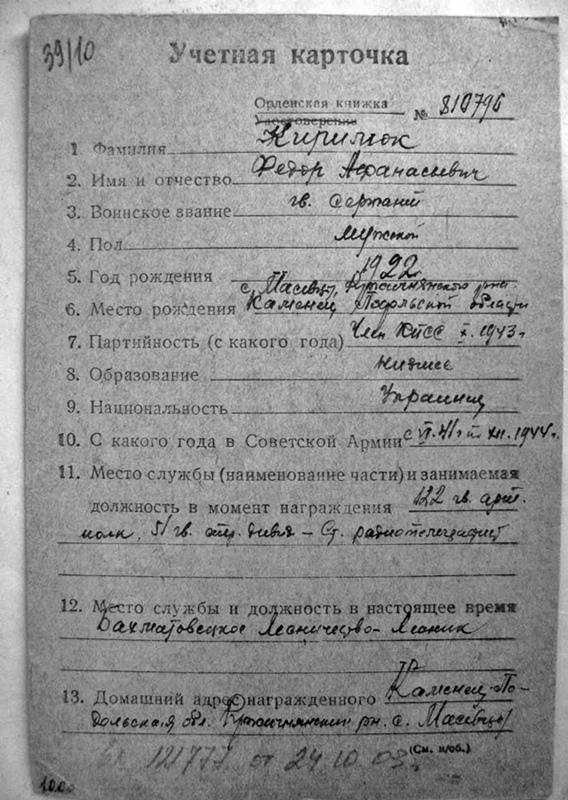 39/10
Учетная карточка
Орденская книжка
Удостоверение № 810796
1. Фамилия Киримюк
2. Имя и отчество Федор Афанасьевич
3. Воинское звание гв. сержант
4. Пол мужской
5. Год рождения 1922
с. Масевцы,
6. Место рождения Каменец Подольской области
7. Партийность (с какого года) Член КПСС X. 1943 г
8. Образование низшее
9. Национальность Украинец
10. С какого года в Советской Армии с VI. 41 г по XII. 1944 г.
11. Место службы (наименование части) и занимаемая
должность в момент награждения 122 гв. арт.
полк, 51 гв. стр. дивиз – Ст. радиотелеграфист
12. Место службы и должность в настоящее время
Бахматовецкое Лесничество – Лесник
13. Домашний адрес награжденного Каменец-По-
дольская обл. рн. с. Масевцы
(См. н/об.)
121777 от 24.10.03г.